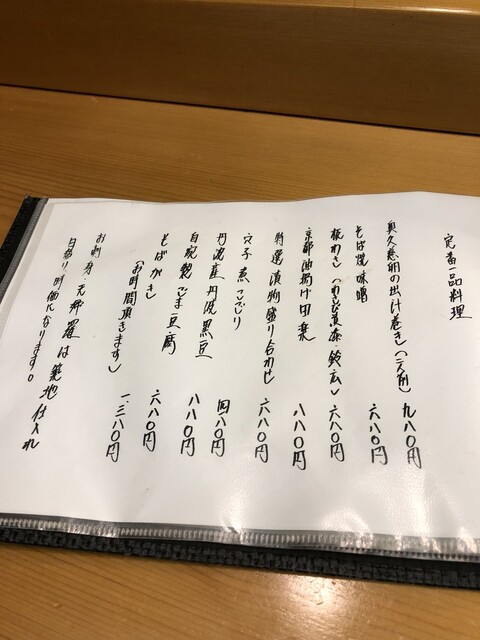 定番一品料理
奥久慈卵の出汁巻き(二人前) 九八〇円
そば焼味噌 六八〇円
板わさ(わさび蒲鉾・鈴広) 六八〇円
京都油揚げ田楽 八八〇円
特選漬物盛り合わせ 六八〇円
穴子煮こごり 八八〇円
丹波産丹波黒豆 四八〇円
自家製ごま豆腐 八八〇円
そばがき 六八〇円
(お時間頂きます) 一、三八〇円
お刺身・天
は築地仕入れ
時価になります。